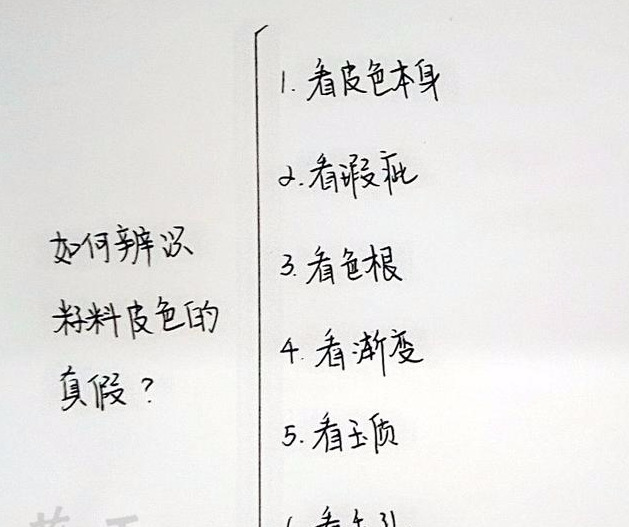 如何辨识
籽料皮色的
真假？
1. 看皮色本身
2. 看瑕疵
3. 看色根
4. 看渐变
5. 看玉质